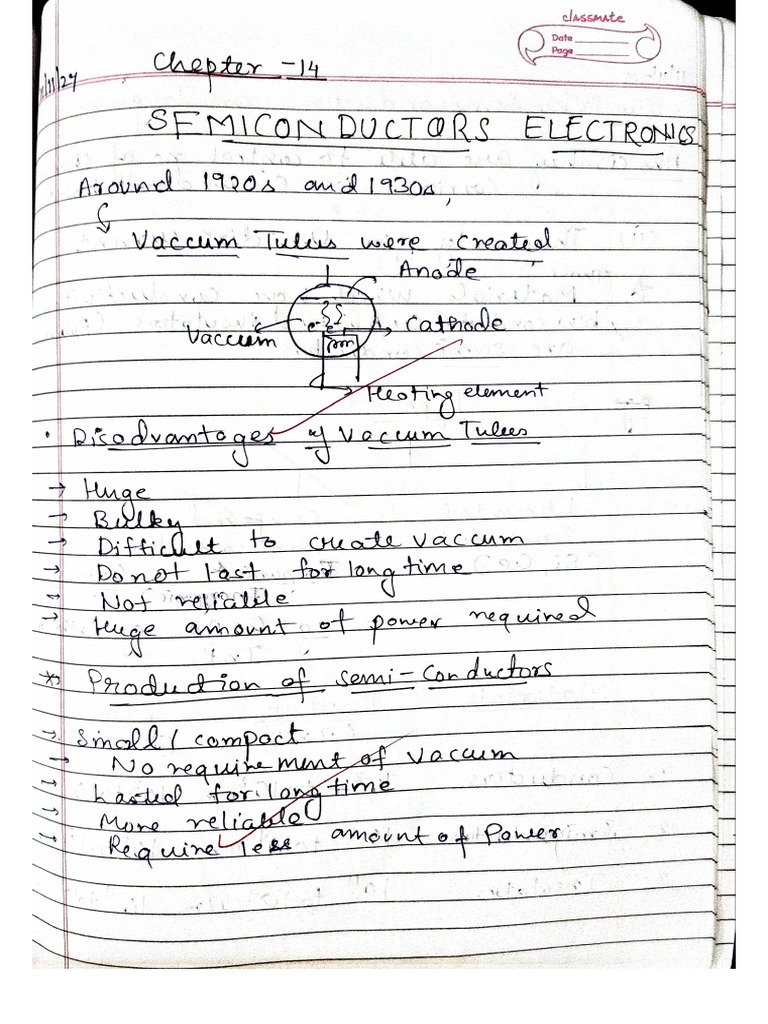 classmate
Date
Page
Chepter - 14
/11/24
SEMICONDUCTORS ELECTRONICS
Around 1920s and 1930s,
Vaccum Tubes were created.
Anode
e-
e-
Cathode
Vaccum
Heating element
• Disadvantages of Vaccum Tubes
→ Huge
→ Bulky
→ Difficult to create vaccum
→ Do not last for long time
→ Not reliable
→ Huge amount of power required
* Production of semi-conductors
→ Small / compact
→ No requirement of vaccum
→ Lasted for long time
→ More reliable
→ Require less amount of Power